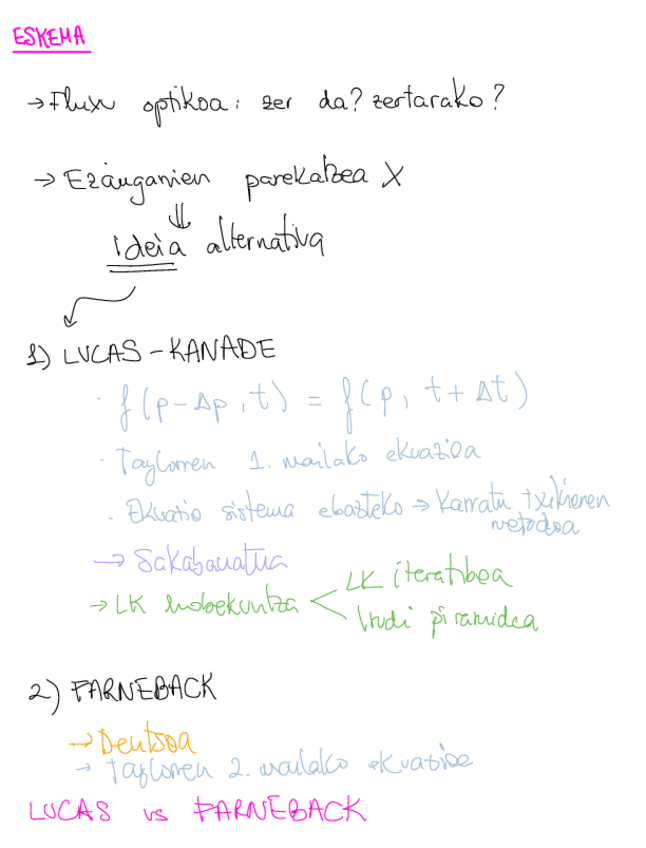 ESKEMA
→ Fluxu optikoa: zer da? zertarako?
→ Ezaugarrien parekatzea X
⇓
ideia alternativa
1) LUCAS-KANADE
· f(p-Δp, t) = f(p, t+Δt)
· Taylorren 1. mailako ekuazioa
· Ekuazio sistema ebazteko → Karratu txikienen
metodoa
→ Sakabanatua
→ LK hobekuntza < LK iteratiboa
Irudi piramidea
2) FARNEBACK
→ Dentsoa
→ Taylorren 2. mailako ekuazioa
LUCAS vs FARNEBACK